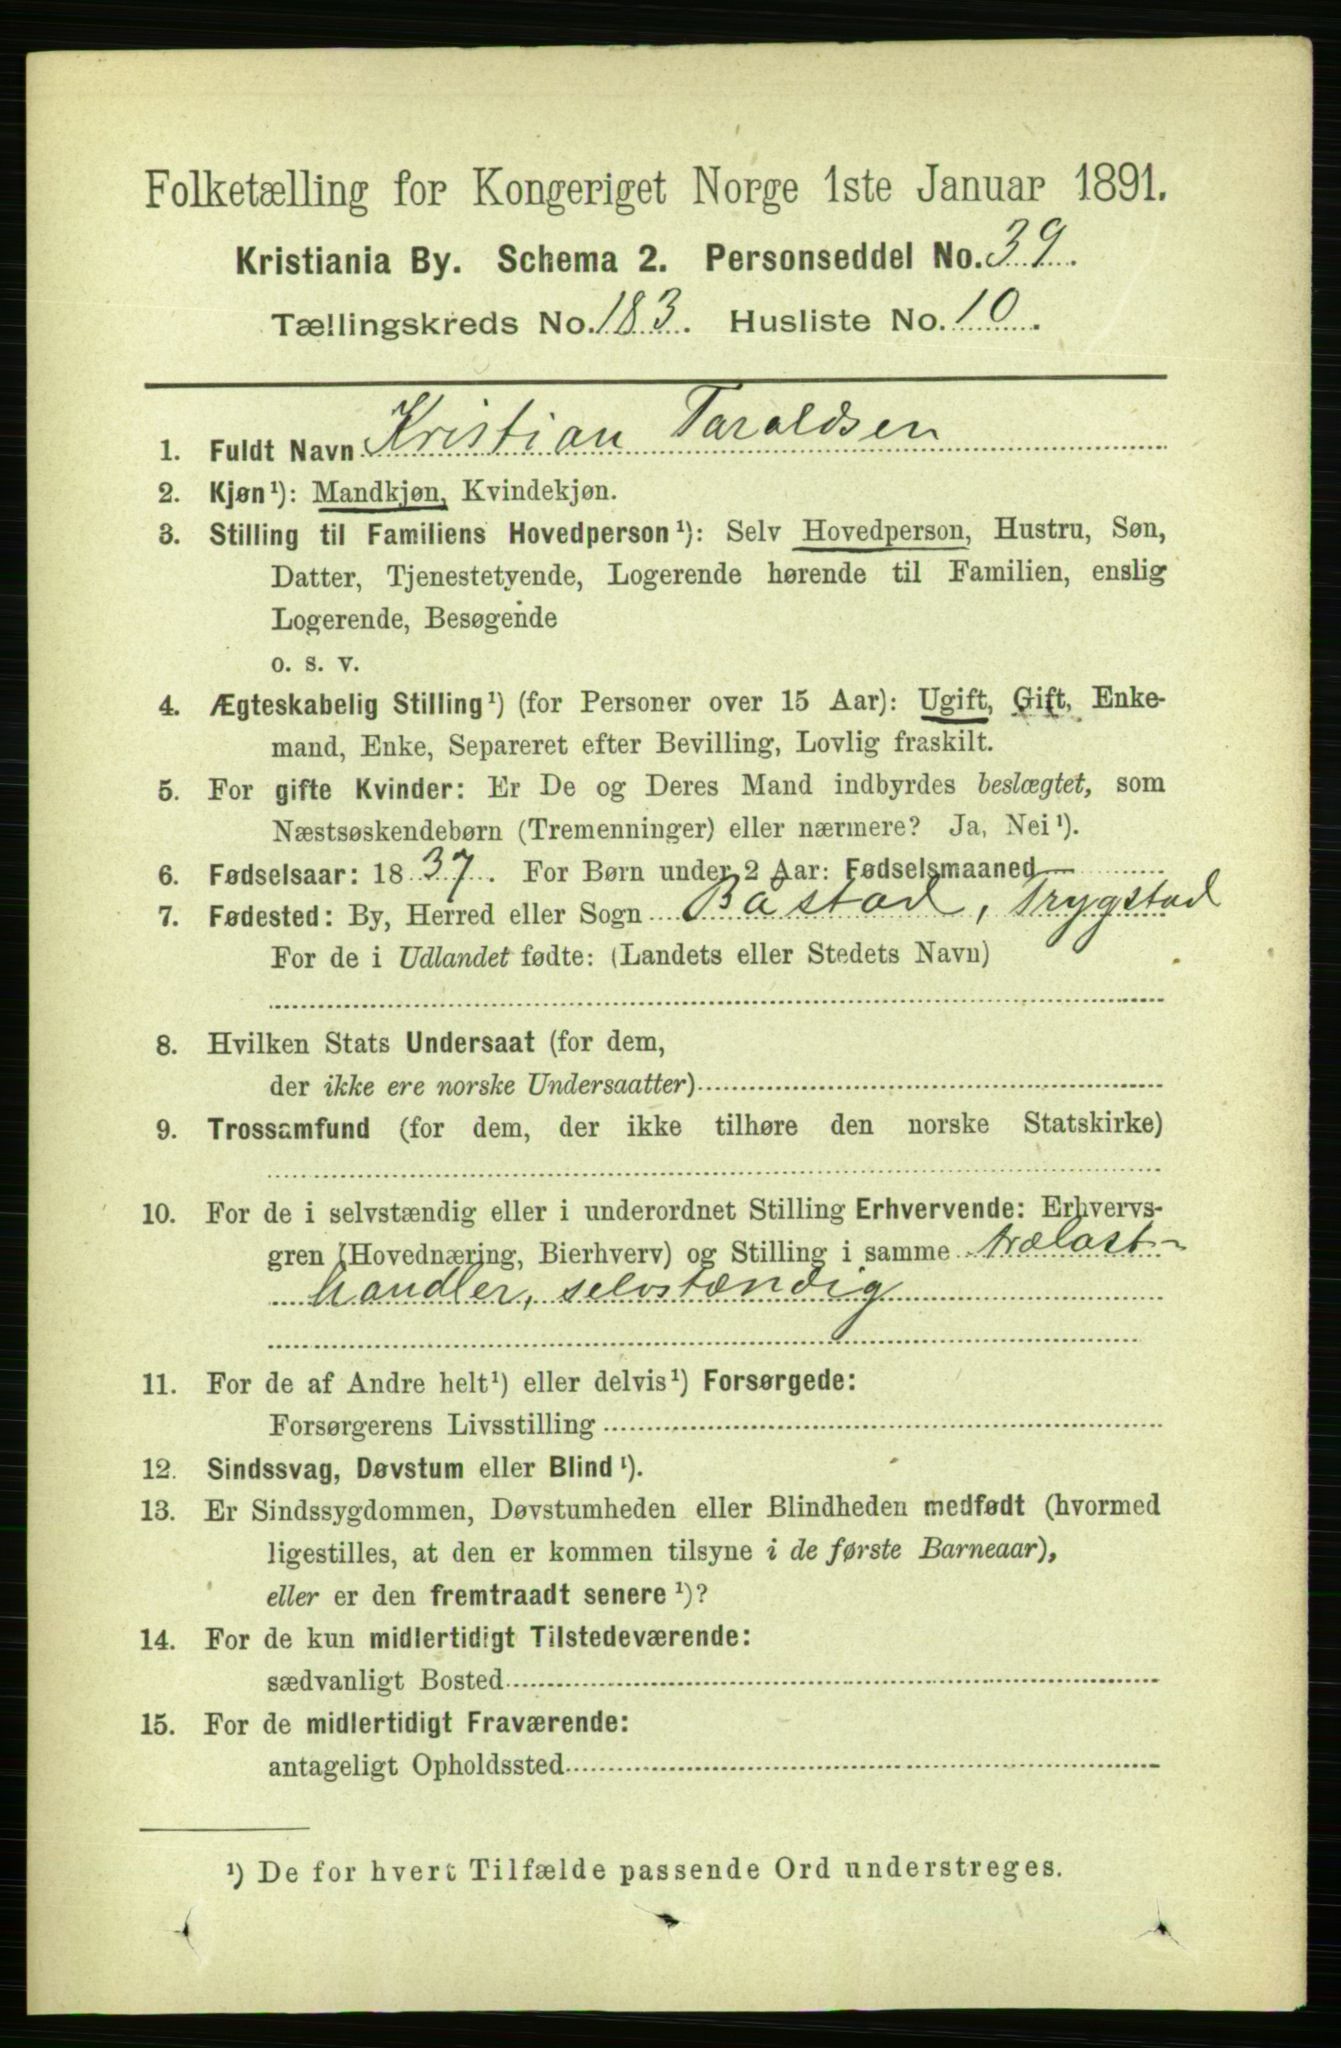 Folketælling for Kongeriget Norge 1ste Januar 1891.
Kristiania By. Schema 2. Personseddel No. 39.
Tællingskreds No. 183. Husliste No. 10.
1. Fuldt Navn Kristian Taraldsen
2. Kjøn¹): Mandkjøn, Kvindekjøn.
3. Stilling til Familiens Hovedperson¹): Selv Hovedperson, Hustru, Søn,
Datter, Tjenestetyende, Logerende hørende til Familien, enslig
Logerende, Besøgende
o. s. v.
4. Ægteskabelig Stilling¹) (for Personer over 15 Aar): Ugift, Gift, Enke-
mand, Enke, Separeret efter Bevilling, Lovlig fraskilt.
5. For gifte Kvinder: Er De og Deres Mand indbyrdes beslægtet, som
Næstsøskendebørn (Tremenninger) eller nærmere? Ja, Nei¹).
6. Fødselsaar: 1837. For Børn under 2 Aar: Fødselsmaaned —
7. Fødested: By, Herred eller Sogn Båstad, Trygstad
For de i Udlandet fødte: (Landets eller Stedets Navn)
8. Hvilken Stats Undersaat (for dem,
der ikke ere norske Undersaatter)
9. Trossamfund (for dem, der ikke tilhøre den norske Statskirke)
10. For de i selvstændig eller i underordnet Stilling Erhvervende: Erhvervs-
gren (Hovednæring, Bierhverv) og Stilling i samme trælast-
handler, selvstændig
11. For de af Andre helt¹) eller delvis¹) Forsørgede:
Forsørgerens Livsstilling
12. Sindssvag, Døvstum eller Blind¹).
13. Er Sindssygdommen, Døvstumheden eller Blindheden medfødt (hvormed
ligestilles, at den er kommen tilsyne i de første Barneaar),
eller er den fremtraadt senere¹)?
14. For de kun midlertidigt Tilstedeværende:
sædvanligt Bosted
15. For de midlertidigt Fraværende:
antageligt Opholdssted
¹) De for hvert Tilfælde passende Ord understreges.